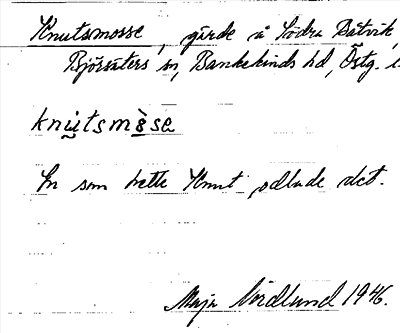 Knutsmosse, gärde å Södra Båtvik,
Björsäters sn, Bankekinds hd, Östg. l
knutsmòse
En som hette Knut odlade det.
Maja Nordlund 1946.